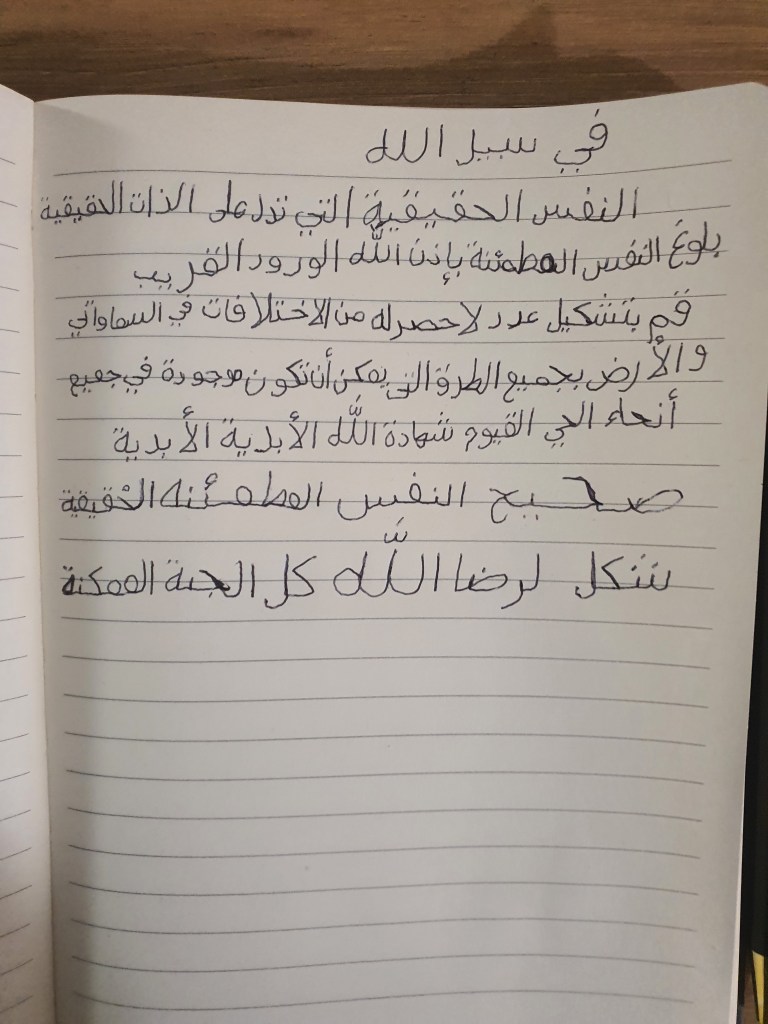 في سبيل الله
النفس الحقيقية التي تدل على الذات الحقيقية
بلوغ النفس المطمئنة بإذن الله الورود القريب
قم بتشكيل عدد لا حصر له من الاختلافات في السماواتي
والأرض بجميع الطرق التي يمكن أن تكون موجودة في جميع
أنحاء الحي القيوم شهادة اللّٰه الأبدية الأبدية
صحيح النفس المطمئنه الحقيقية
شكل لرضا اللّٰه كل الجنة الممكنة